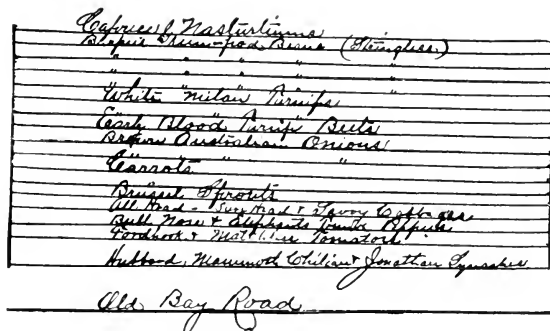 Caprice & Nasturtiums
Burpee's Stringless-pod Beans (Stringless)
" " " " "
" " " " "
White "Milan" Turnips
Early Blood Turnip Beets
Brown Australian Onions
" " "
Carrots
Brussel Sprouts
All Head - Sure Head & Savoy Cabbages
Bull Nose & Elephants Trunk Peppers
Fordhook & Matchless Tomatoes
Hubbard, Mammoth Chilian & Jonathan Squashes
Old Bay Road